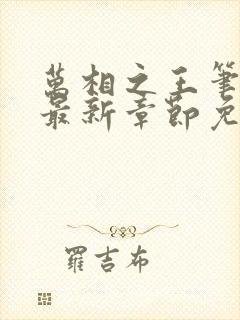 萬相之王筆
最新章節免
羅吉布